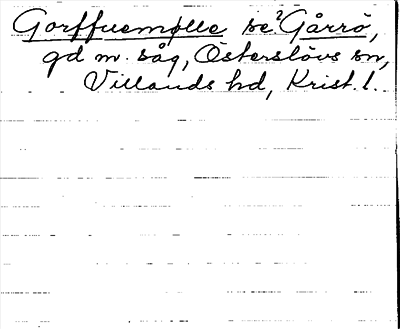 Gorffuemølle se? Gårrö,
gd m. såg, Österslövs sn,
Villands hd, Krist. l.